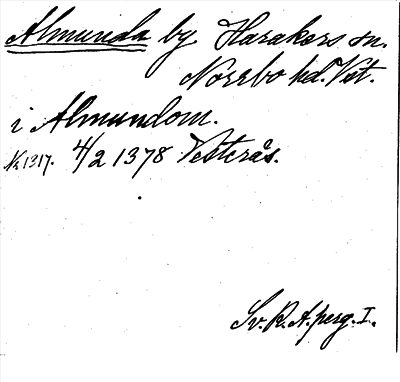 Almunda by Harakers sn.
Norrbo hd. Vst.
i Almundom.
Nr 1317. 4/2 1378 Vesterås.
Sv. R. A. perg. I.